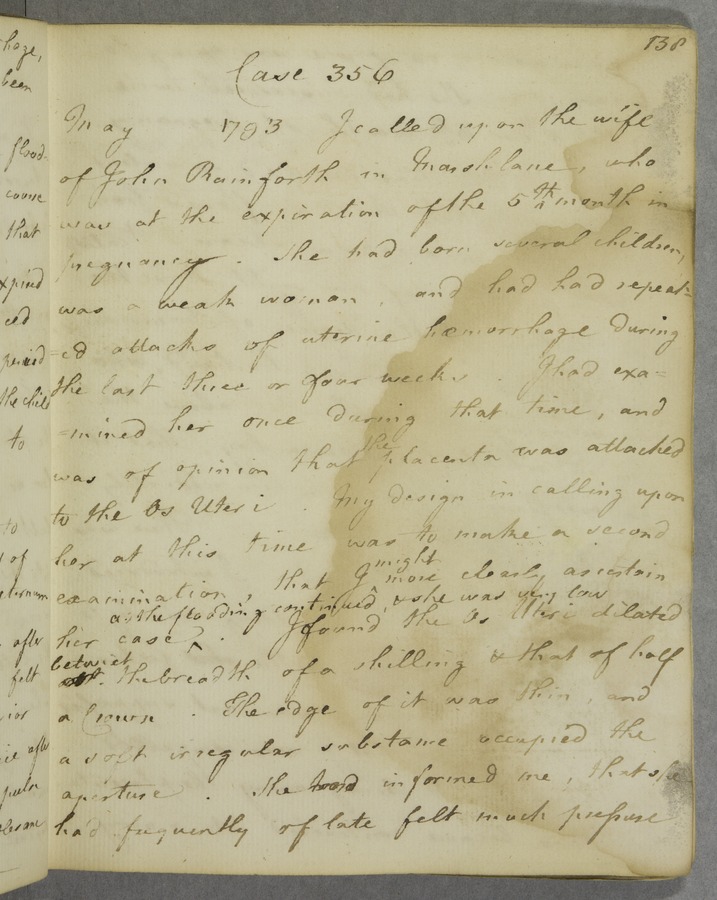 138
Case 356
May 1793 I called upon the wife
of John Rainforth in Marshlane, who
was at the expiration of the 5th month in
pregnancy. She had born several children,
was a weak woman, and had had repeat=
=ed attacks of uterine hæmorrhage during
the last three or four weeks. I had exa=
=mined her once during that time, and
was of opinion that the placenta was attached
to the Os Uteri. My design in calling upon
her at this time was to make a second
examination, that I might more clearly ascertain
as the flooding continued, & she was very low
her case. I found the Os Uteri dilated
betwixt the breadth of a shilling & that of half
a Crown. The edge of it was thin, and
a soft irregular substance occupied the
aperture. She informed me, that she
had frequently of late felt much pressure
hage,
been
flood-
course
that
expired
ced
period
the child
to
to
of
after
felt
after